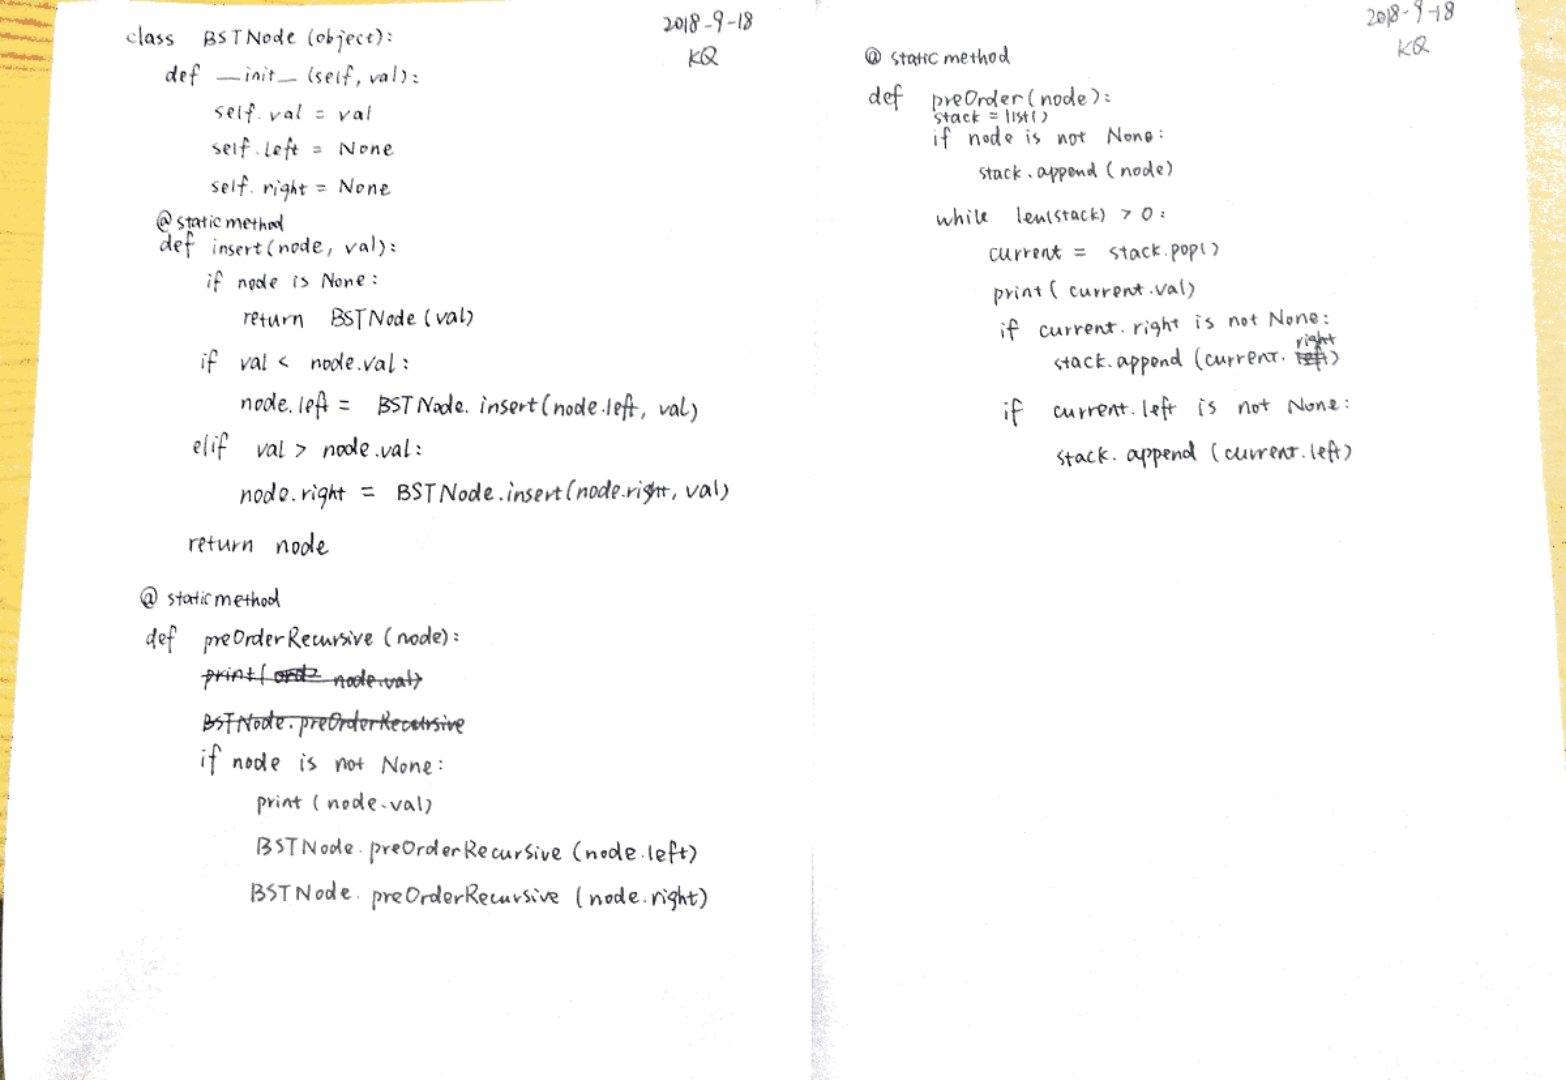 2018-9-18
KQ
class BSTNode (object):
def __init__ (self, val):
self.val = val
self.left = None
self.right = None
@staticmethod
def insert(node, val):
if node is None:
return BSTNode(val)
if val < node.val:
node.left = BSTNode.insert(node.left, val)
elif val > node.val:
node.right = BSTNode.insert(node.right, val)
return node
@staticmethod
def preOrderRecursive(node):
print( node.val)
BSTNode.preOrderRecursive
if node is not None:
print(node.val)
BSTNode.preOrderRecursive(node.left)
BSTNode.preOrderRecursive(node.right)
2018-9-18
KQ
@staticmethod
def preOrder(node):
stack = list()
if node is not None:
stack.append(node)
while len(stack) > 0:
current = stack.pop()
print(current.val)
if current.right is not None:
right
stack.append(current.left)
if current.left is not None:
stack.append(current.left)